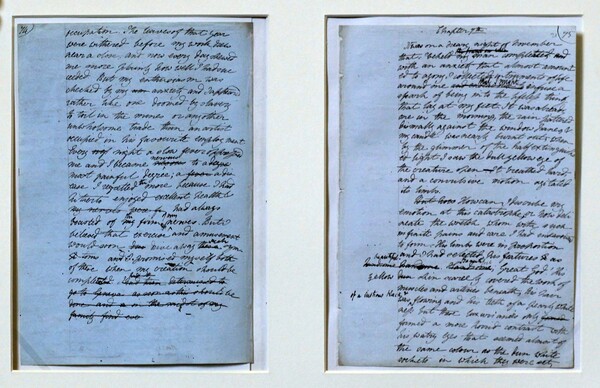 occupation. The leaves of that year
were withered before my work drew
near a close, and now every day shewed
me more plainly how well I had suc
ceeded But my enthusiasm was
checked by my anxiety and I appeared
rather like one doomed by slavery
to toil in the mines or any other
unwholsome trade than an artist
occupied in his favourite employment
Every night a slow fever
me and I became nervous to a
most painful degree; a
ease I regretted more because I had
hitherto enjoyed excellent health &
had always
boasted of my firm nerves. But I
believed that exercise and amusement
would soon drive away
and I promised myself both
of these when my creation should be
complete
Chapter 7th
It was on a dreary night of November
that I beheld my man completed and
with an anxiety that almost amount
ed to agony, I collected instruments of life
around me that I might infuse a
spark of being into the lifeless thing
that lay at my feet. It was already
one in the morning, the rain pattered
dismally against the window panes &
my candle was nearly burnt out, when
by the glimmer of the half extinguish
ed light I saw the dull yellow eye of
the creature open. It breathed hard,
and a convulsive motion agitated
its limbs.
But how How can I describe my
emotion at this catastrophe; or how deli
neate the wretch whom with such
infinite pains and care I had endeavoured
to form. His limbs were in proportion
and I had selected his features as
Great God! His
yellow skin scarcely covered the work of
muscles and arteries beneath; his hair
of a lustrous black
was flowing and his teeth of a pearly white
ness but these luxuriancies only
formed a more horrid contrast with
his watry eyes that seemed almost of
the same colour as the dun white
sockets in which they were set,